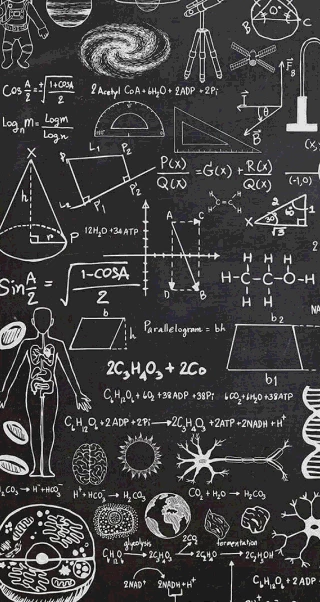 B
C
Cos A/2 = ±√(1+COSA/2)
2 Acetyl CoA + 6H₂O + 2ADP + 2Pi
Logₙm = Logm/Logn
X
h
r
P
L₁
P₂
P'₂
P'₁
P(x)/Q(x) = G(x) + R(x)/Q(x)
(-1,0)
12H₂O + 34ATP
A
C
D
B
X
30
60
2
1
√3
Sin A/2 = √(1-COSA/2)
H-C-C-O-H
b
h
Parallelogram = bh
b₂
b₁
2C₃H₄O₃ + 2Co
C₆H₁₂O₆ + 6O₂ + 38ADP + 38Pi
6CO₂ + 6H₂O + 38ATP
C₆H₁₂O₆ + 2ADP + 2Pi → 2C₃H₄O₃ + 2ATP + 2NADH + H⁺
H₂CO₃ → H⁺ + HCO₃⁻
H⁺ + HCO₃⁻ → H₂CO₃
CO₂ + H₂O → H₂CO₃
glycolysis
2CO₂
fermentation
2NAD⁺
2NADH + H⁺
C₆H₁₂O₆ + 2ADP +